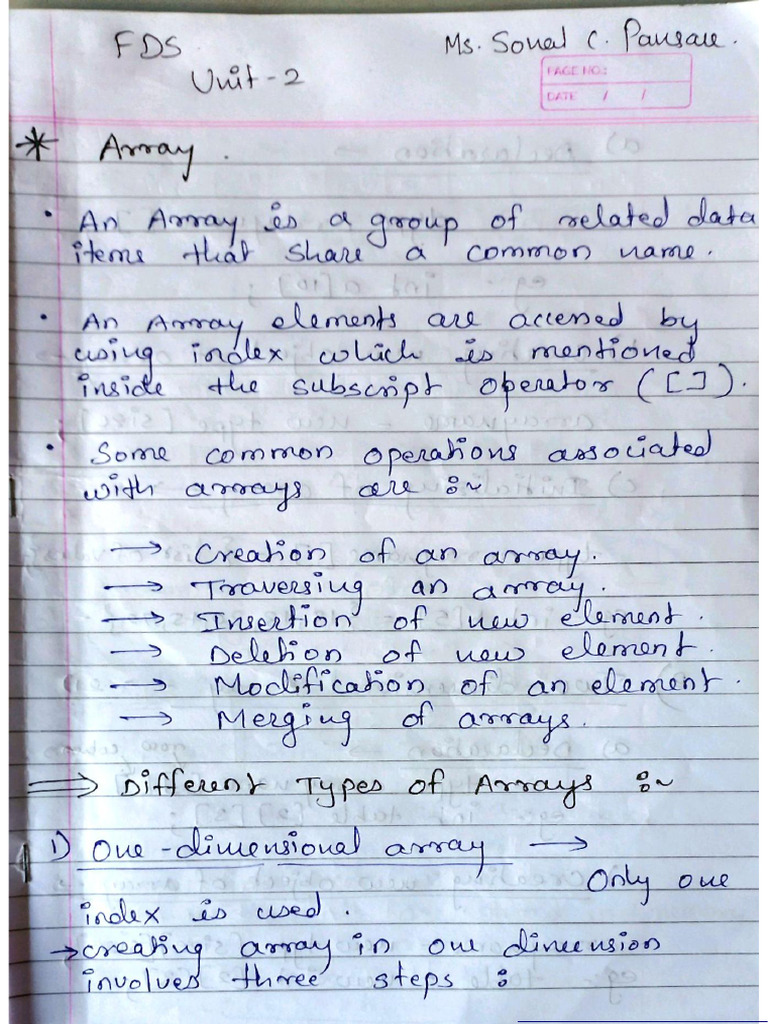 FDS.
Ms. Sonal C. Pansare.
Unit-2
PAGE NO.:
DATE / /
* Array.
• An Array is a group of related data
items that share a common name.
• An Array elements are accessed by
using index which is mentioned
inside the subscript operator ([]).
• Some common operations associated
with arrays are :~
→ Creation of an array.
→ Traversing an array.
→ Insertion of new element.
→ Deletion of new element.
→ Modification of an element.
→ Merging of arrays.
⇒ Different Types of Arrays :~
1) One-dimensional array →
Only one
index is used.
→ creating array in one dimension
involves three steps :